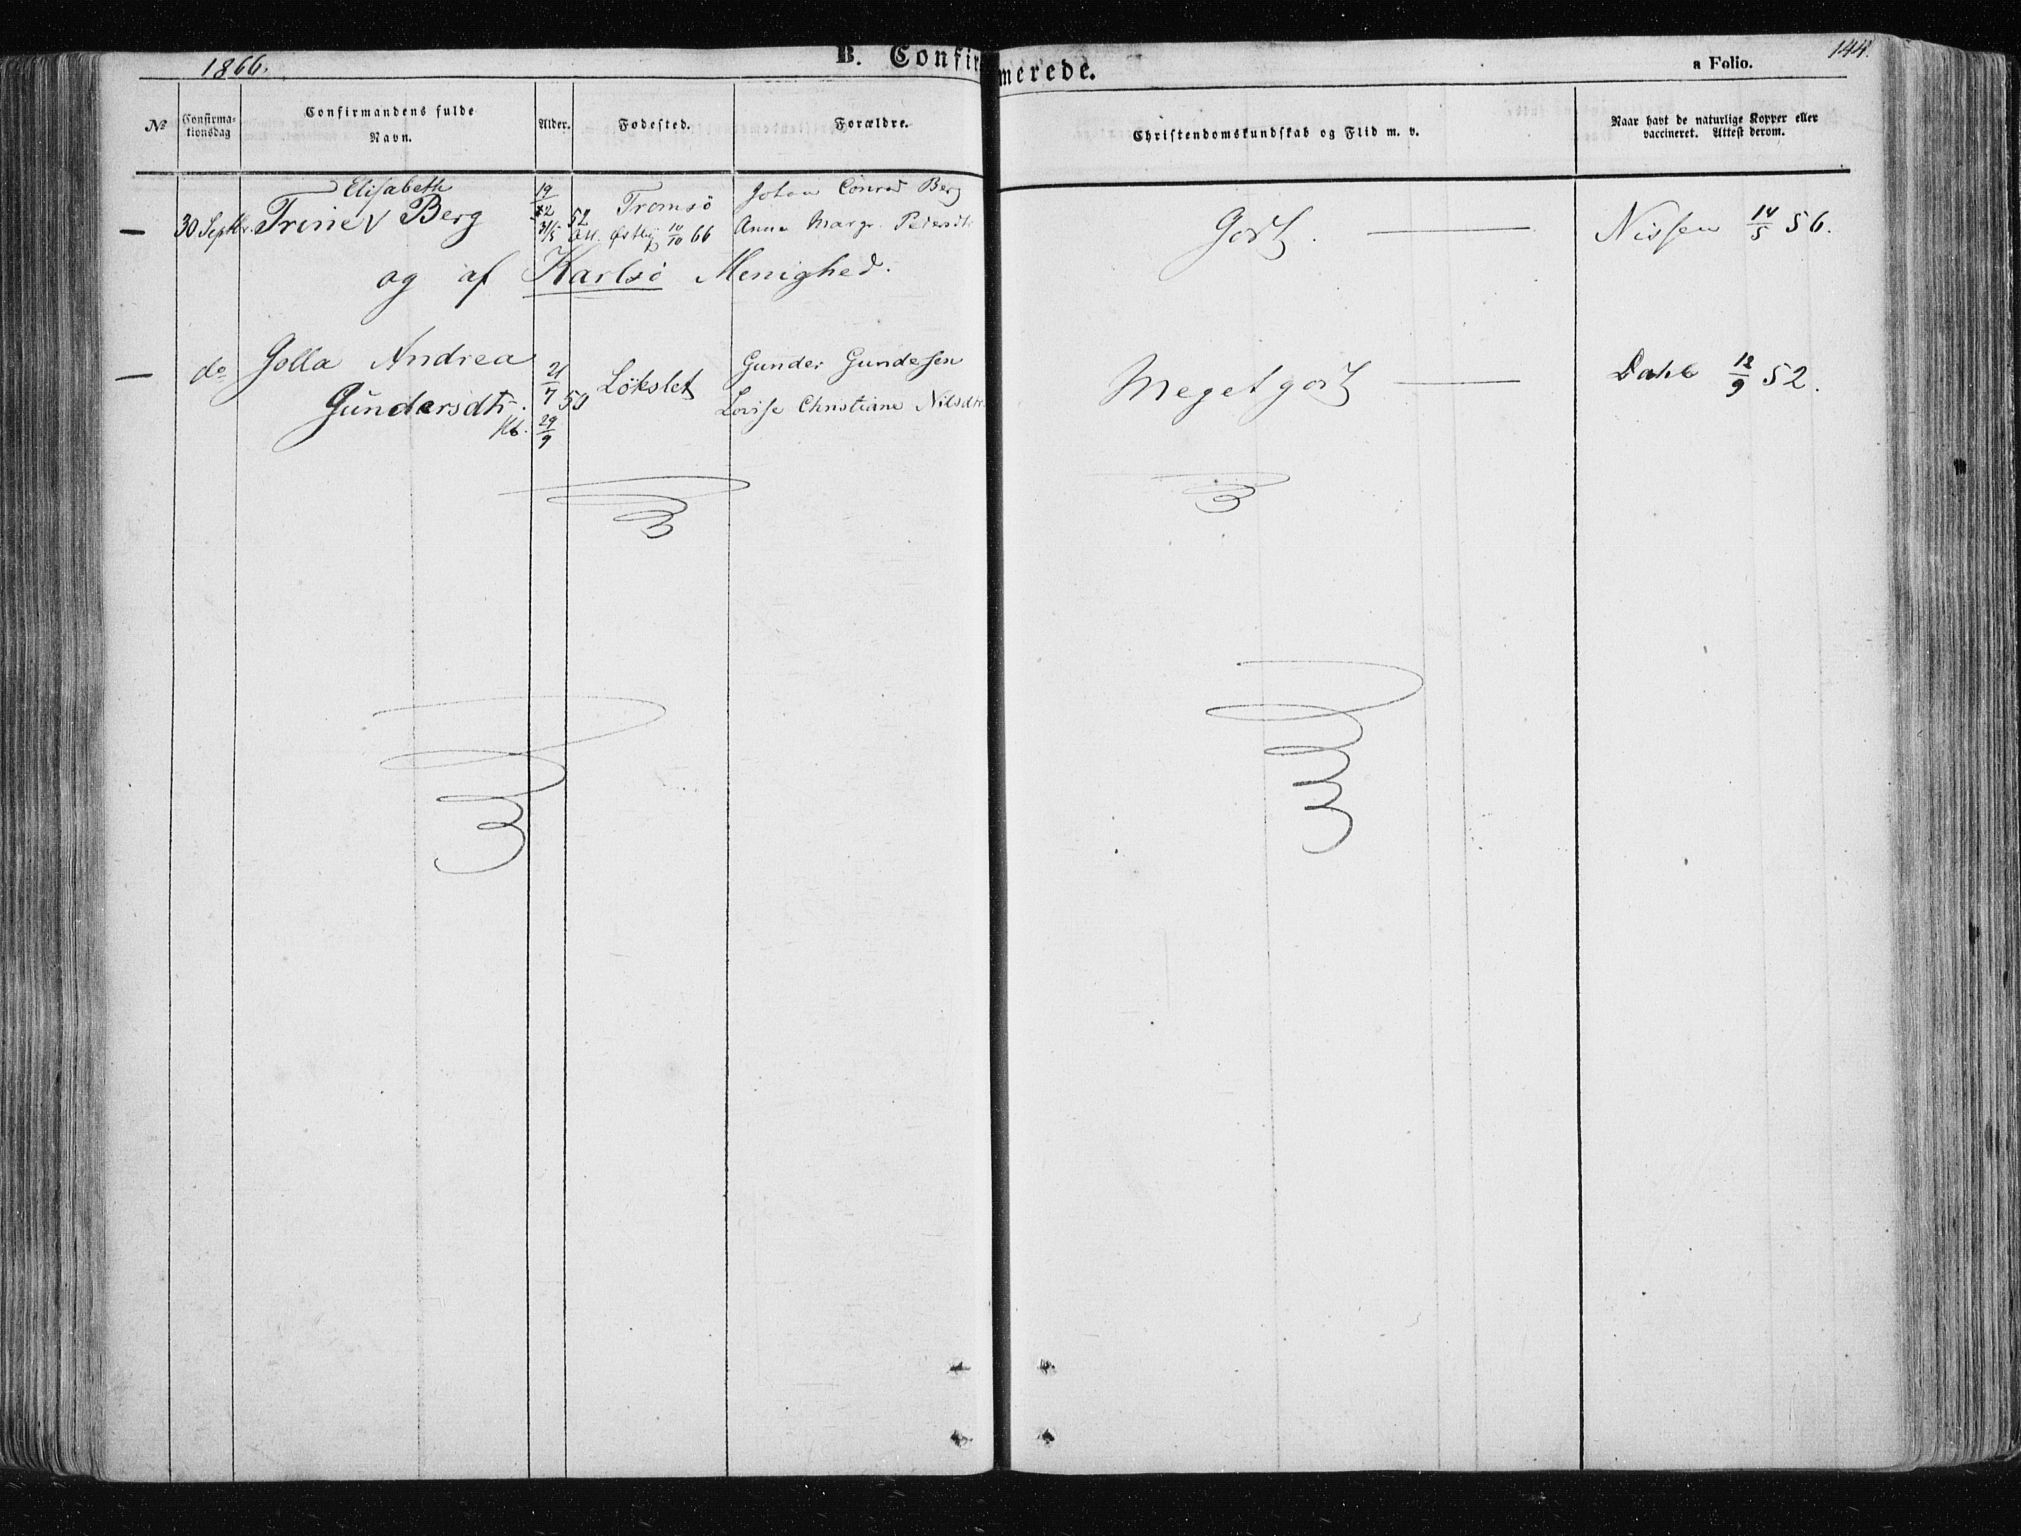 1866.
B. Confirmerede.
a Folio.
144.
No
Confirma-
tionsdag
Confirmandens fulde
Navn.
Alder.
Fødested.
Forældre.
Christendomskundskab og Flid m. v.
Naar havt de naturlige Kopper eller
vaccineret. Attest derom.
Elisabeth
— 30 Septbr. Trine √ Berg
19
52
Att. Østby 10/10 66
Tromsö
Johan Conrad Berg
Anna Margr. Pedersdtr
Godt. —
Nissen 14/5 56.
og af Karlsö Menighed.
— do Golla Andrea
Gundersdtr.
21/7 50
29/9
Lökslet
Gunder Gundersen
Lovise Christiane Nilsdtr
Meget godt —
Dahl 12/9 52.